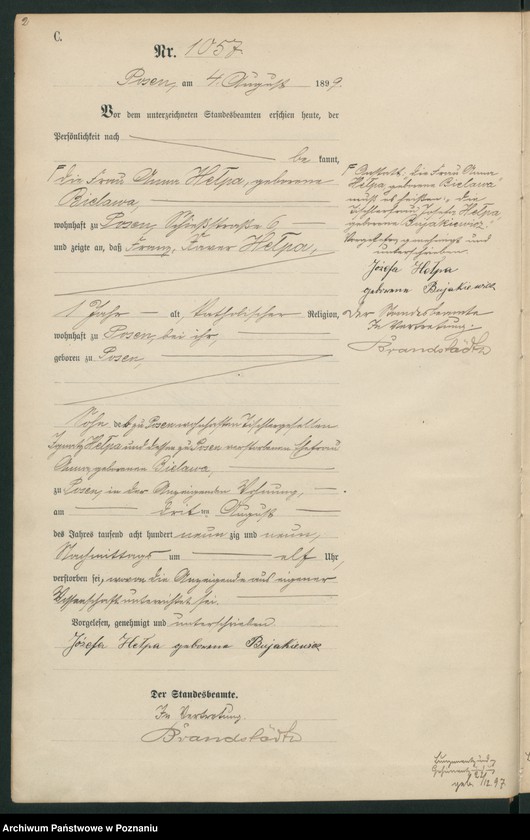 2
C.
Nr. 1057
Posen, am 4. August 1899.
Vor dem unterzeichneten Standesbeamten erschien heute, der
Persönlichkeit nach
be kannt,
die Frau Anna Hełpa, geborene
Bielawa,
wohnhaft zu Posen, Schießstraße 6
und zeigte an, daß Franz, Xaver Hełpa,
1 Jahr alt, katholischer Religion,
wohnhaft zu Posen, bei ihr,
geboren zu Posen,
Sohn des zu Posen wohnhaften Tischlergesellen
Ignatz Hełpa und dessen zu Posen verstorbenen Ehefrau
Anna geborenen Bielawa,
zu Posen, in der Anzeigenden Wohnung,
am dritten August
des Jahres tausend acht hundert neun zig und neun,
Nachmittags um elf Uhr,
verstorben sei, wovon die Anzeigende aus eigener
Wissenschaft unterrichtet sei.
Vorgelesen, genehmigt und unterschrieben
Józefa Hełpa geborene Bujakiewicz
Der Standesbeamte.
In Vertretung.
Brandstädter
Anstatt „die Frau Anna
Hełpa, geborene Bielawa“
muß es heißen: „die
Tischlerfrau Josefa Hełpa,
geborene Bujakiewicz“.
Vorgelesen, genehmigt und
unterschrieben
Józefa Hełpa
geborene Bujakiewicz
Der Standesbeamte
In Vertretung.
Brandstädter
geb. 12. 97.
Archiwum Państwowe w Poznaniu